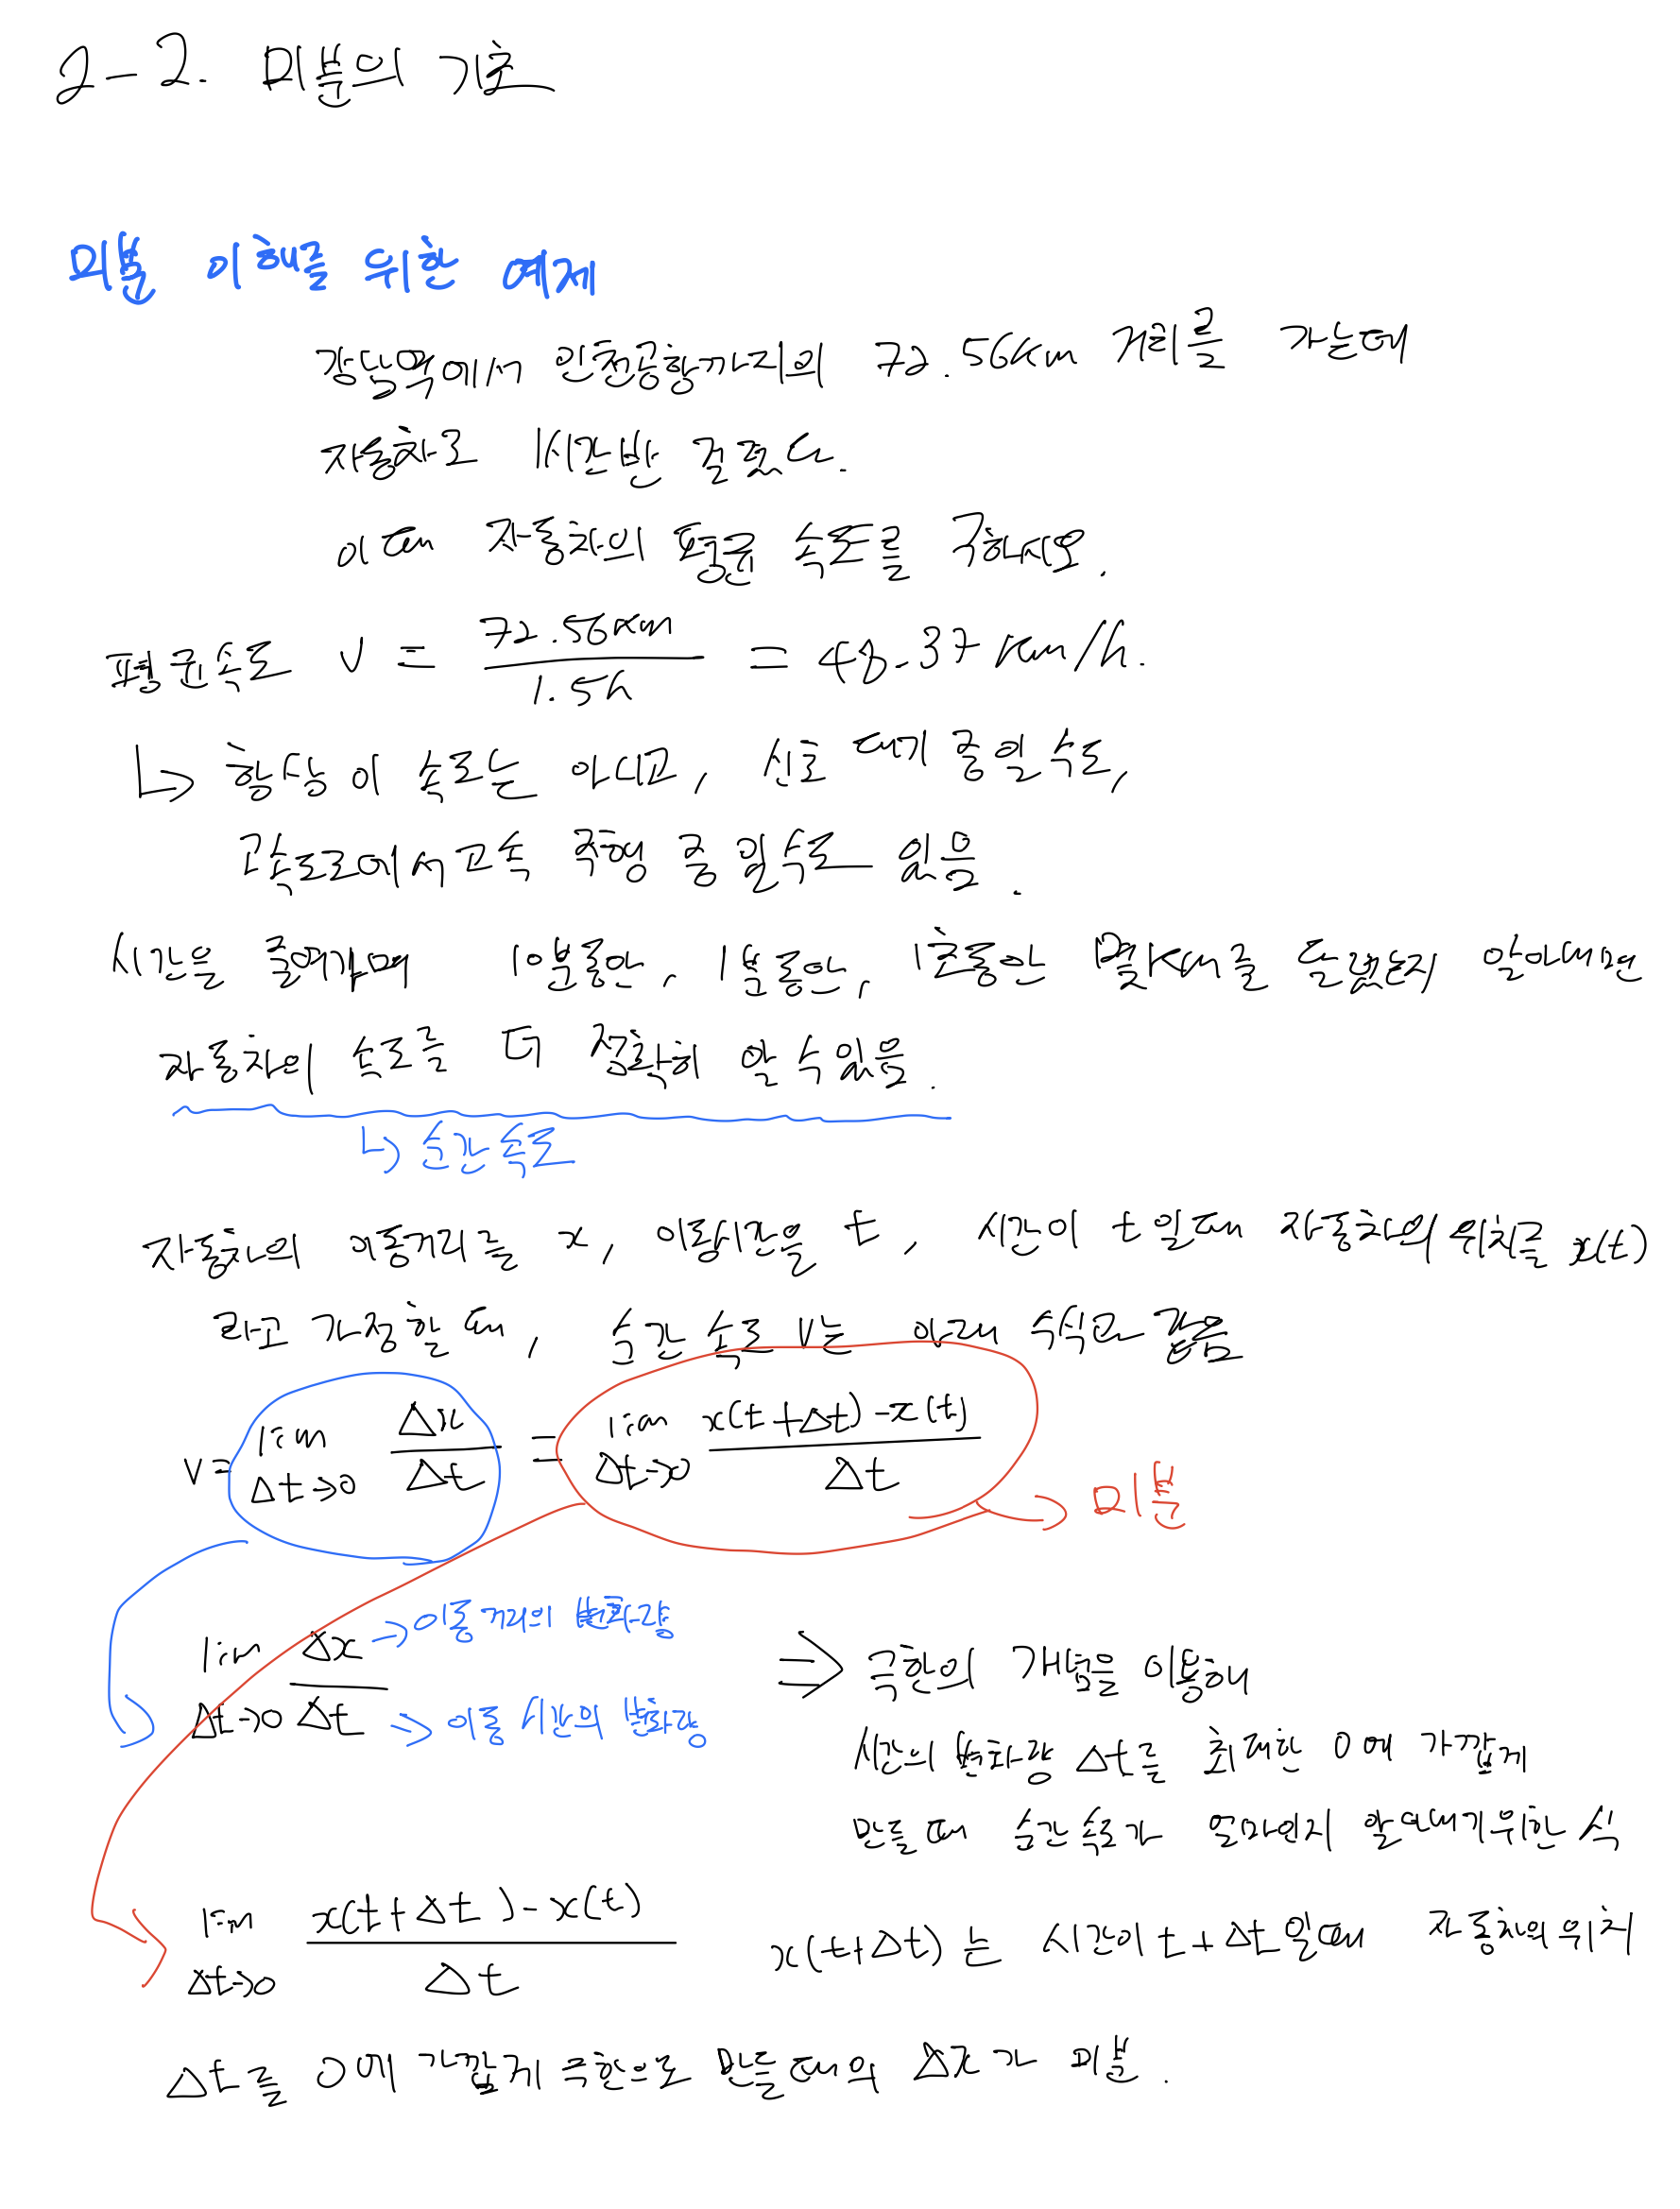 2-2. 미분의 기초
미분 이해를 위한 예제
강남역에서 인천공항까지의 72.56km 거리를 가는데
자동차로 1시간반 걸렸다.
이때 자동차의 평균 속도를 구하시오.
평균속도 v = 72.56km / 1.5h = 48.37km/h.
↳ 항상 이 속도는 아니고, 신호 대기 중일 수도,
고속도로에서 고속 주행 중 일수도 있음.
시간을 줄여가며 10분동안, 1분동안, 1초동안 몇km를 달렸는지 알아내면
자동차의 속도를 더 정확히 알 수 있음.
↳ 순간속도
자동차의 이동거리를 x, 이동시간을 t, 시간이 t일때 자동차의 위치를 x(t)
라고 가정할 때, 순간 속도 v는 아래 수식과 같음
v = lim Δt→0 Δx/Δt = lim Δt→0 (x(t+Δt)-x(t))/Δt
→ 미분
lim Δt→0 Δx/Δt
→ 이동 거리의 변화량
→ 이동 시간의 변화량
⇒ 극한의 개념을 이용해
시간의 변화량 Δt를 최대한 0에 가깝게
만들 때 순간속도가 얼마인지 알아내기위한 식
lim Δt→0 (x(t+Δt)-x(t))/Δt
x(t+Δt)는 시간이 t+Δt일때 자동차의 위치
Δt를 0에 가깝게 극한으로 만들때의 Δx가 미분.